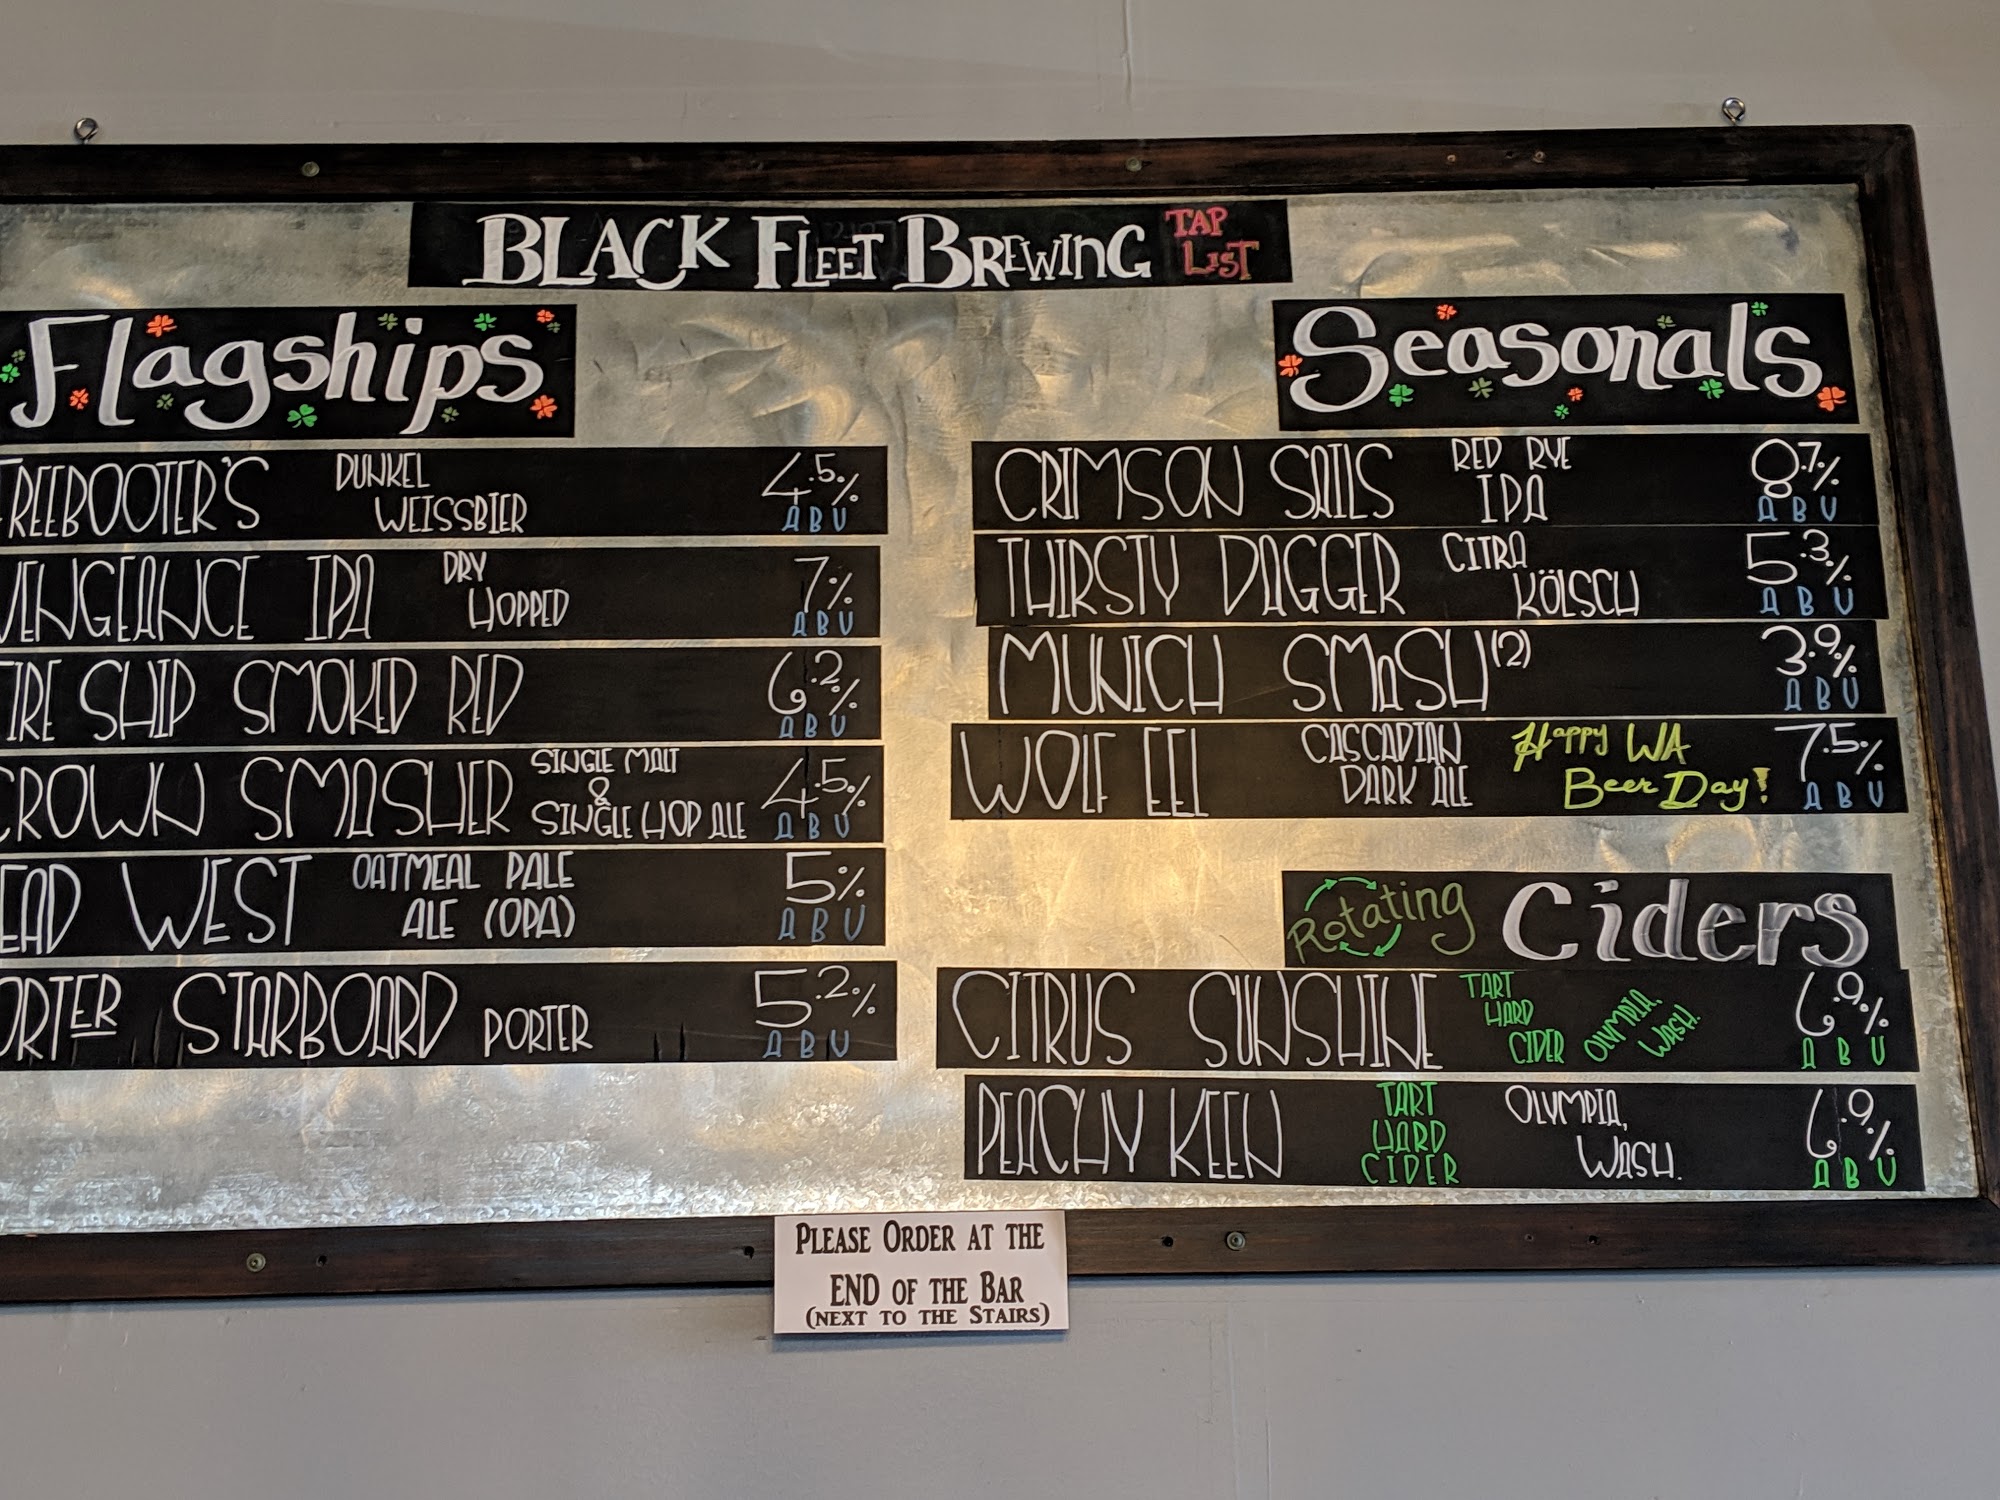 BLACK FLEET BREWING TAP LIST
Flagships
FREEBOOTER'S DUNKEL WEISSBIER 4.5% ABV
VENGEANCE IPA DRY HOPPED 7% ABV
FIRE SHIP SMOKED RED 6.2% ABV
CROWN SMASHER SINGLE MALT & SINGLE HOP ALE 4.5% ABV
EAD WEST OATMEAL PALE ALE (OPA) 5% ABV
ORTER STARBOARD PORTER 5.2% ABV
Seasonals
CRIMSON SAILS RED RYE IPA 8.7% ABV
THIRSTY DAGGER CITRA KÖLSCH 5.3% ABV
MUNICH SMaSH(2) 3.9% ABV
WOLF EEL CASCADIAN DARK ALE Happy WA Beer Day! 7.5% ABV
Rotating Ciders
CITRUS SUNSHINE TART HARD CIDER OLYMPIA, WASH. 6.9% ABV
PEACHY KEEN TART HARD CIDER OLYMPIA, WASH. 6.9% ABV
PLEASE ORDER AT THE
END OF THE BAR
(NEXT TO THE STAIRS)